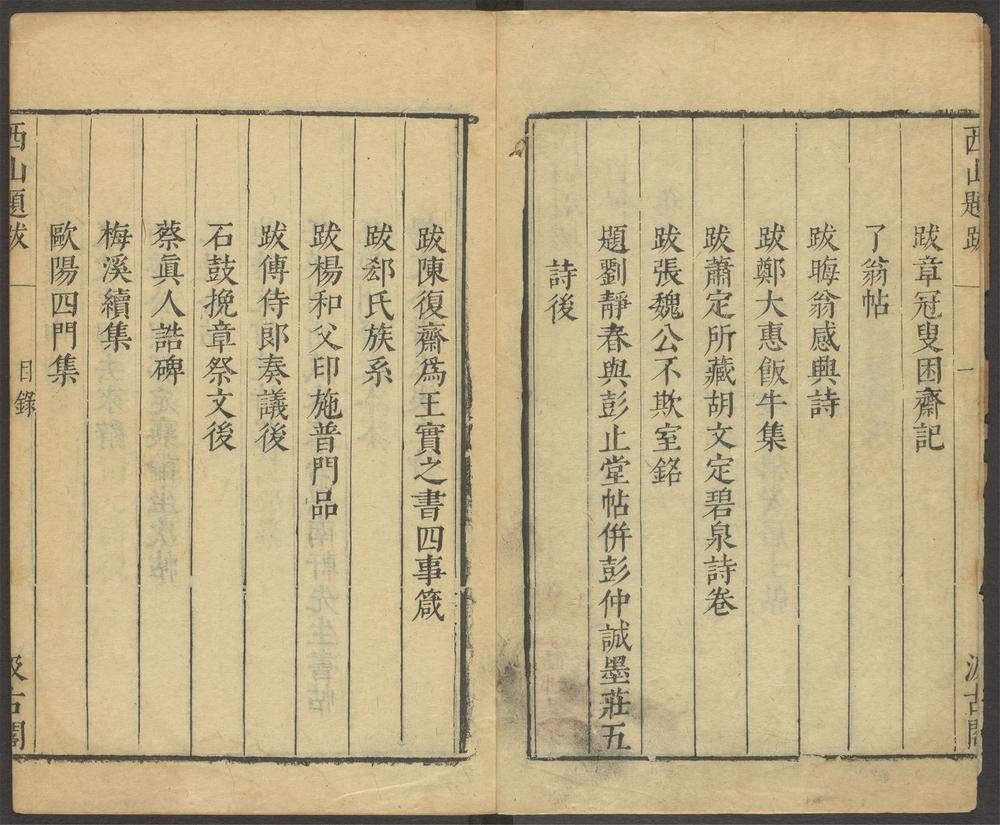 西山題跋
一
汲古閣
跋章冠叟困齋記
了翁帖
跋晦翁感興詩
跋鄭大惠飯牛集
跋蕭定所藏胡文定碧泉詩卷
跋張魏公不欺室銘
題劉靜春與彭止堂帖併彭仲誠墨莊五
詩後
跋陳復齋爲王實之書四事箴
跋郄氏族系
跋楊和父印施普門品
跋傅侍郎奏議後
石鼓挽章祭文後
蔡眞人誥碑
梅溪續集
歐陽四門集
西山題跋
目錄
汲古閣